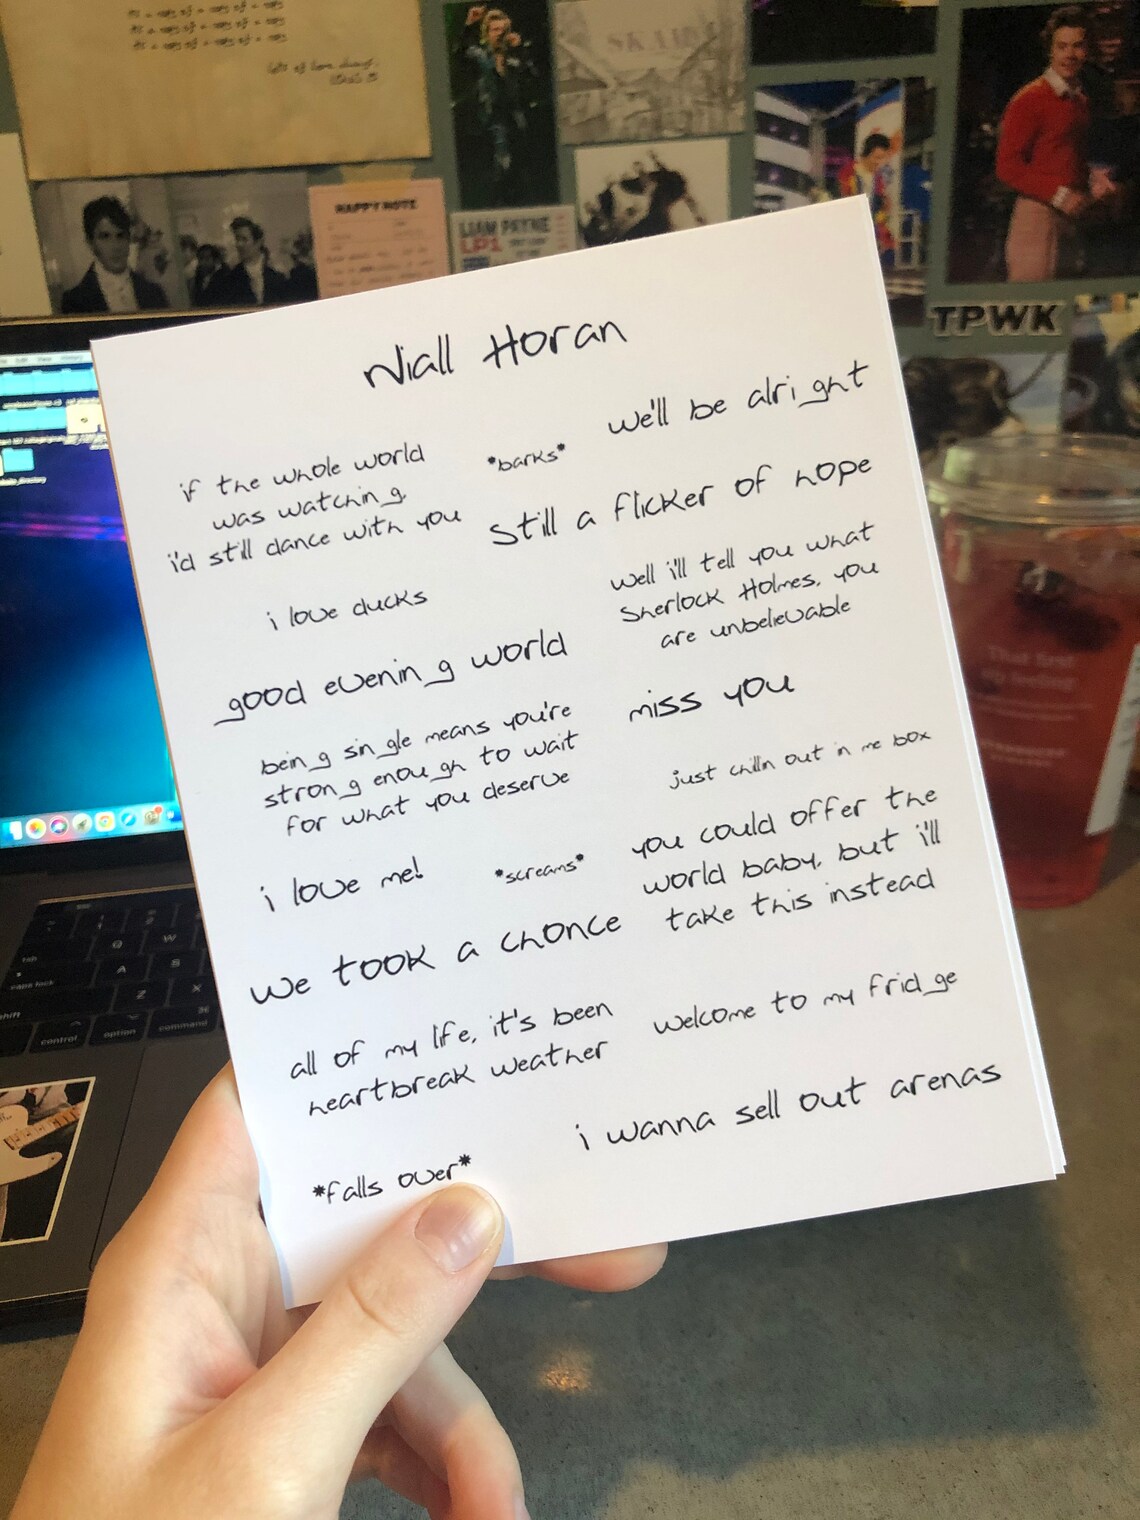 HAPPY NOTE
LIAM PAYNE
LP1
TPWK
Niall Horan
if the whole world
was watching,
i'd still dance with you
*barks*
we'll be alright
still a flicker of hope
i love ducks
well i'll tell you what
Sherlock Holmes, you
are unbelievable
good evening world
miss you
being single means you're
strong enough to wait
for what you deserve
just chilln out in me box
i love me!
*screams*
you could offer the
world baby, but i'll
take this instead
we took a chonce
all of my life, it's been
heartbreak weather
welcome to my fridge
i wanna sell out arenas
*falls over*
tab
Q
W
caps lock
A
S
shift
Z
X
control
option
command